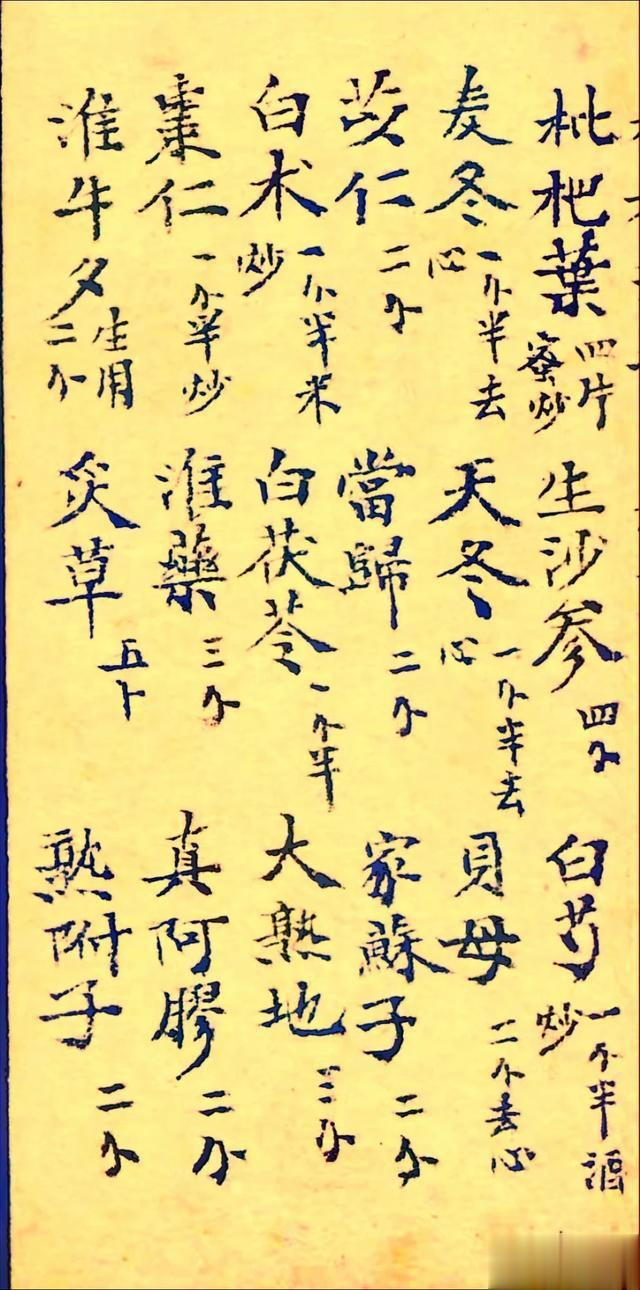 枇杷葉 四片蜜炒 生沙參 四个 白芍 一个半酒炒
麦冬 一个半去心 天冬 一个半去心 貝母 二个去心
苡仁 二个 當歸 二个 家蘇子 二个
白术 一个半米炒 白茯苓 一个半 大熟地 三个
棗仁 一个半炒 淮藥 三个 真阿膠 二个
淮牛夕 生用二个 炙草 五卜 熟附子 二个